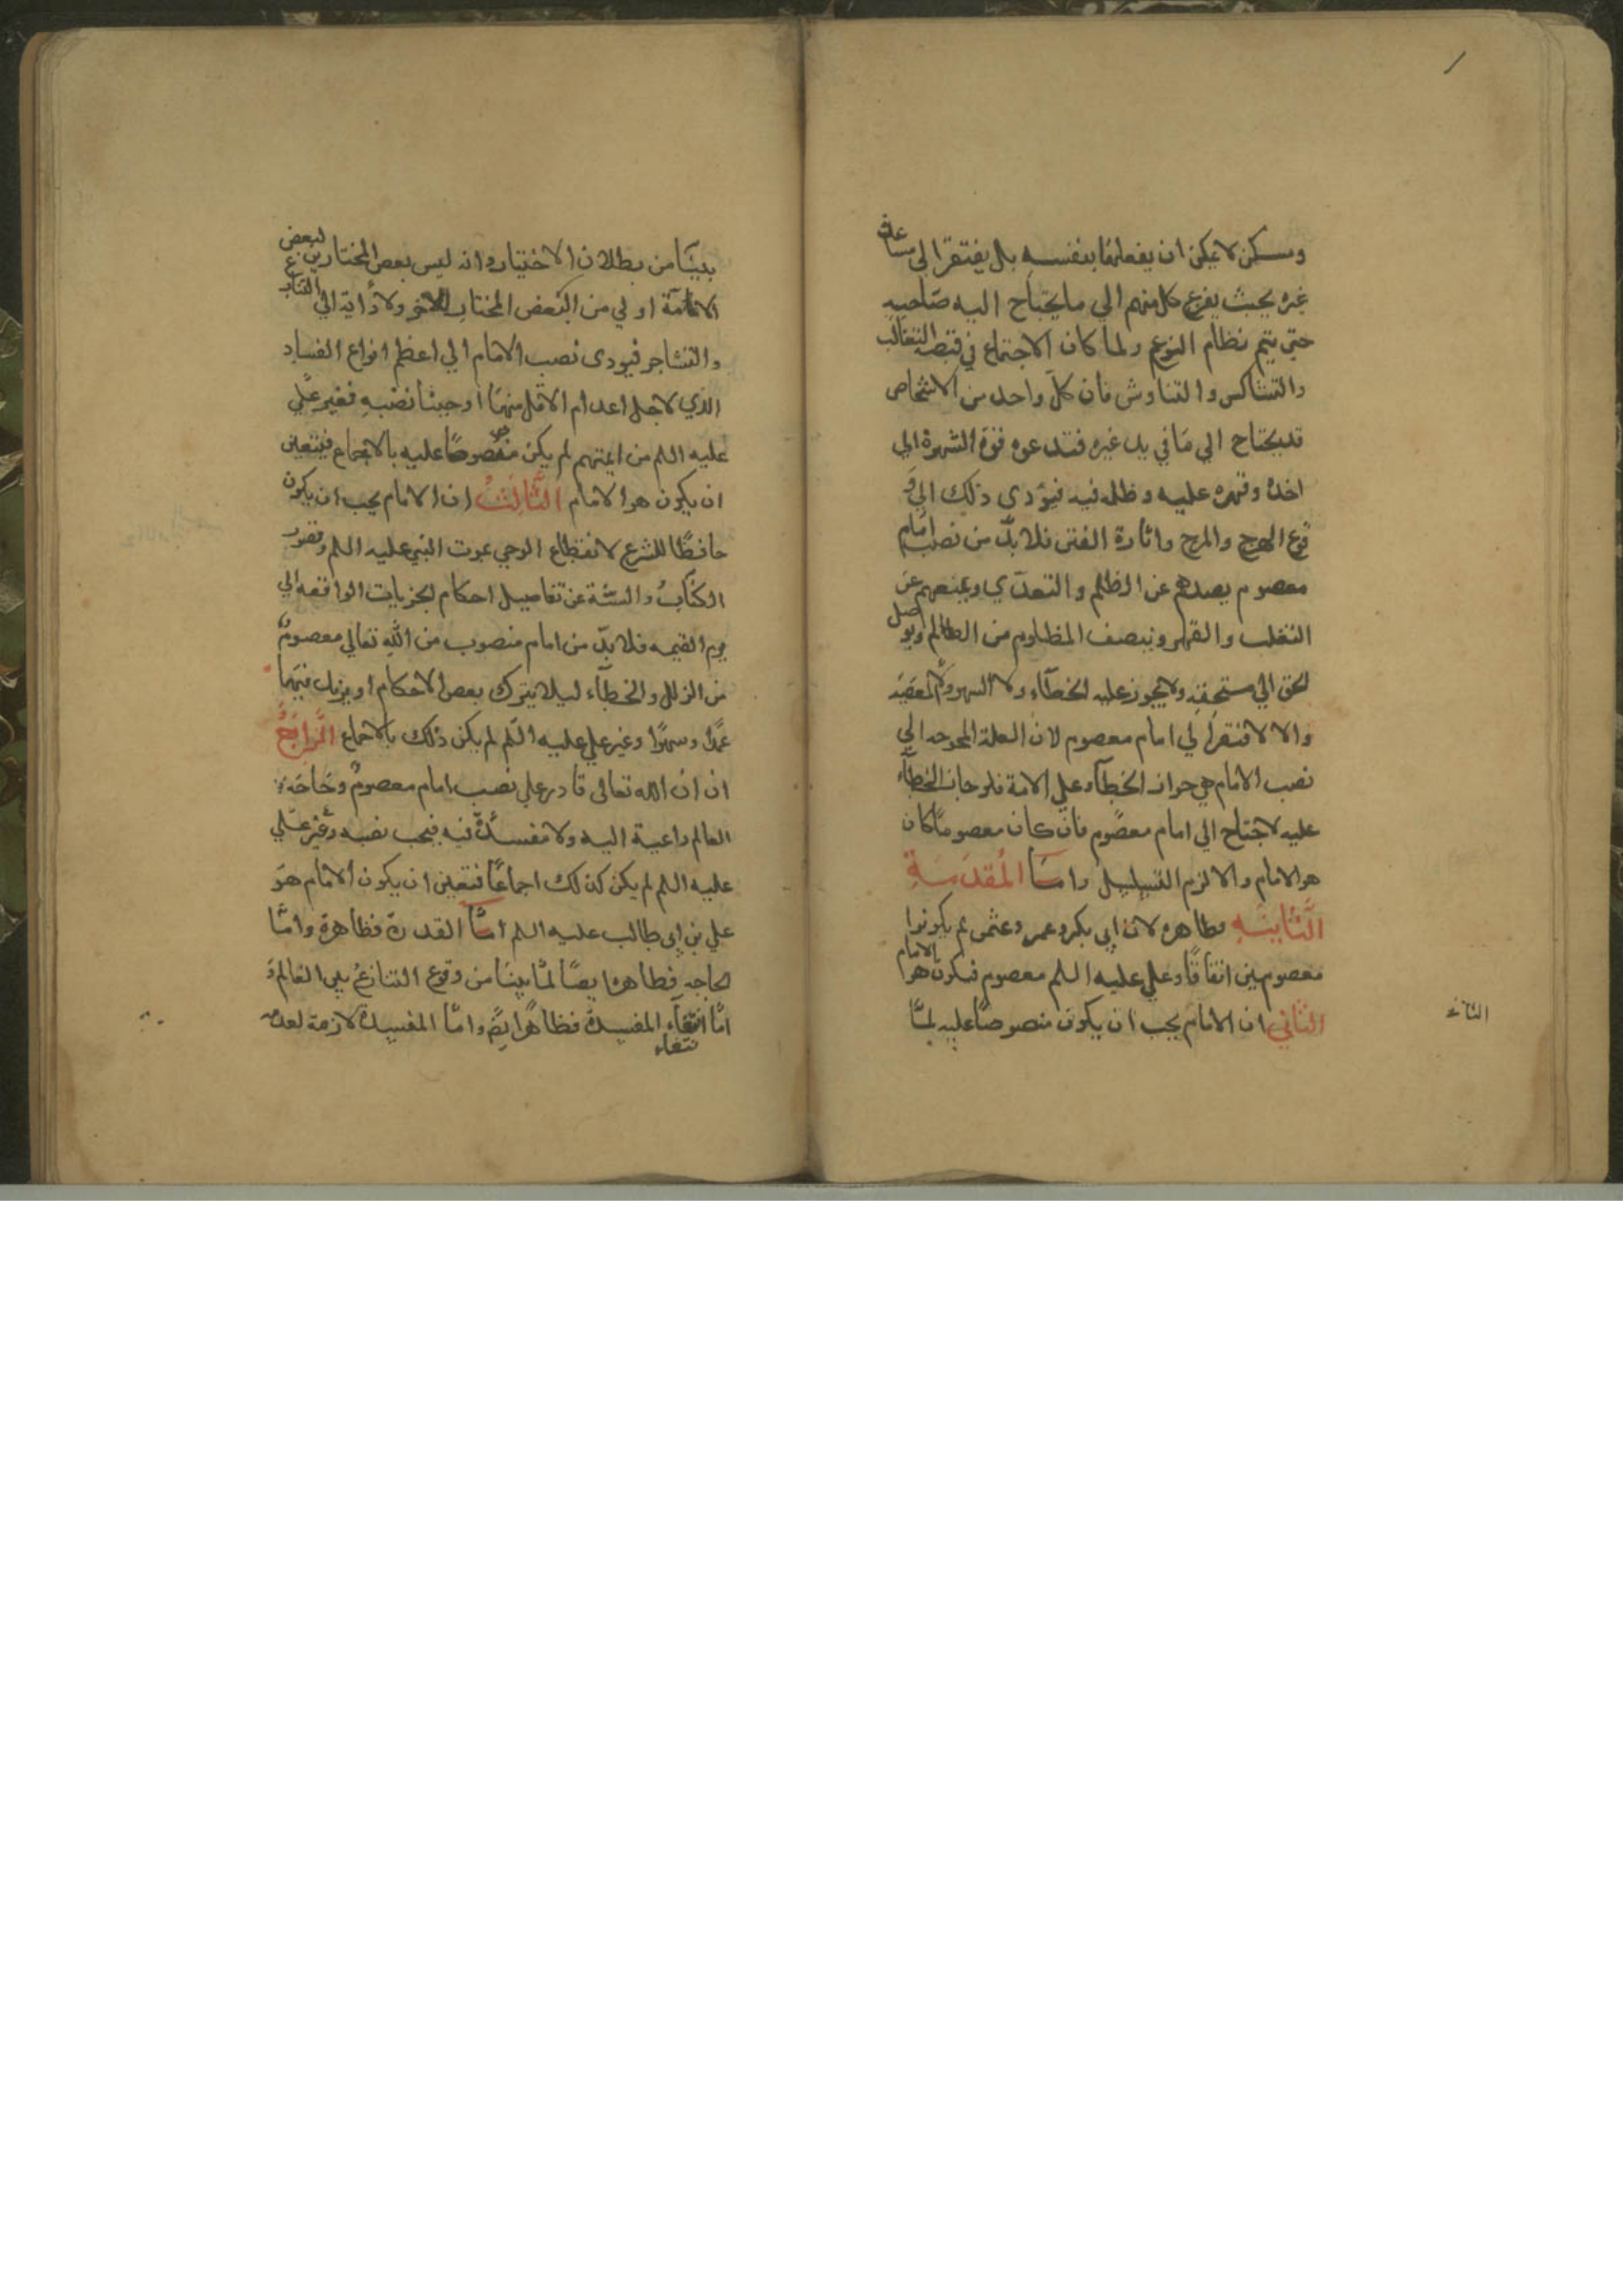 ومسكن لا يمكن ان يفعلها بنفسه بل يفتقر الى مساعدة
غيره بحيث يفزع كل منهم الي ما يحتاج اليه صاحبه
حتى يتم نظام النوع ولما كان الاجتماع في التغالب
والتشاكس والتناوش فان كل واحد من الاشخاص
قد يحتاج الي ما في يد غيره فتدعوه قوة الشهوة الي
اخذه وقهره عليه وظلمه فيه فيؤدي ذلك الي و
قوع الهرج والمرج واثارة الفتن فلا بدّ من نصب امام
معصوم يصدهم عن الظلم والتعدّي ويمنعهم عن
التغلب والقهر وينصف المظلوم من الظالم ويوصل
الحق الي مستحقه ولا يجوز عليه الخطاء ولا السهو ولا المعصية
والا لافتقر الي امام معصوم لان العلة المحوجه الي
نصب الامام هي جواز الخطاء علي الامة فلو جاز الخطاء
عليه لاحتاج الي امام معصوم فان كان معصوما كان
هو الامام والا لزم التسلسل واما المقدمة
الثانية فظاهره لان ابي بكر وعمر وعثمن لم يكونوا
معصومين اتفاقًا وعلي عليه السلم معصوم فيكون هو الامام
الثاني ان الامام يجب ان يكون منصوصًا عليه لمّا
بينا من بطلان الاختيار وانه ليس بعض المختارين لبعض
الامامة اولي من البعض المختار الاخر ولادايه الي التنازع
والتشاجر فيودى نصب الامام الي اعظم انواع الفساد
الذي لاجل اعدام الاقل منها اوجبنا نصبه فغير علي
عليه السلم من ايمتهم لم يكن منصوصًا عليه بالاجماع فيتعين
ان يكون هو الامام الثَّالِثُ ان الامام يجب ان يكون
حافظًا للشرع لانقطاع الوحي بموت النبي عليه السلم وقصور
الكتاب والسنّة عن تفاصيل احكام الجزيات الواقعه الي
يوم القيمه فلا بدّ من امام منصوب من الله تعالي معصوم
من الزلل والخطاء ليلا يترك بعض الاحكام او يزيد فيها
عمدًا وسهوًا وغير علي عليه السّلم لم يكن ذلك بالاجماع الرَّابعُ
ان ان الله تعالى قادر علي نصب امام معصوم وحاجة
العالم داعية اليه ولا مفسدة فيه فيجب نصبه وغير علي
عليه السلم لم يكن كذلك اجماعًا فتعين ان يكون الامام هو
علي بن ابي طالب عليه السلم امّا القدرة فظاهرة وامّا
الحاجه فظاهره ايضًا لمّا بينا من وقوع التنازع بين العالم و
امّا انتفاء المفسدة فظاهر ايضًا وامّا المفسدة لازمة لعدمه
نتفاء